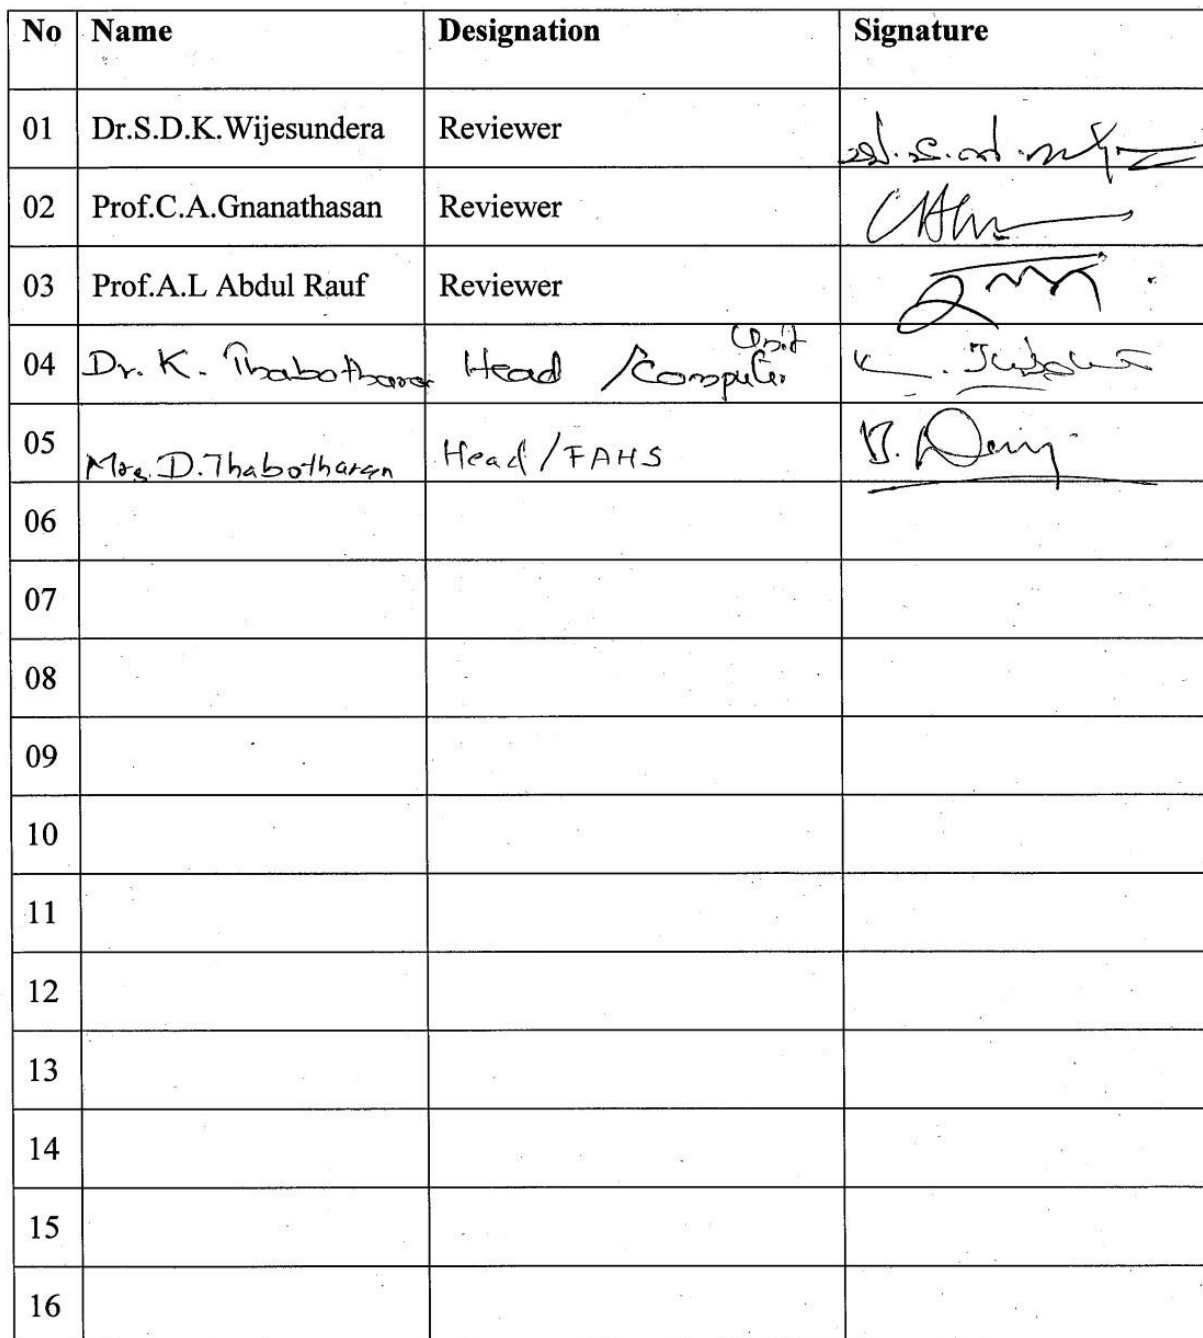 No Name Designation Signature
01 Dr.S.D.K.Wijesundera Reviewer
02 Prof.C.A.Gnanathasan Reviewer
03 Prof.A.L Abdul Rauf Reviewer
04 Dr. K. Thabotharan Head /Computer Unit
05 Mrs. D.Thabotharan Head/FAHS
06
07
08
09
10
11
12
13
14
15
16